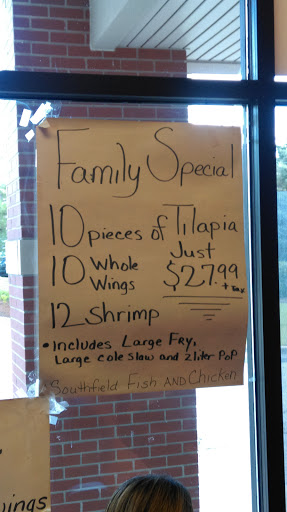 Family Special
10 pieces of Tilapia
10 Whole Wings
Just $27.99 + Tax
12 Shrimp
• Includes Large Fry,
Large cole slaw and 2 liter PoP
Southfield Fish AND Chicken
wings